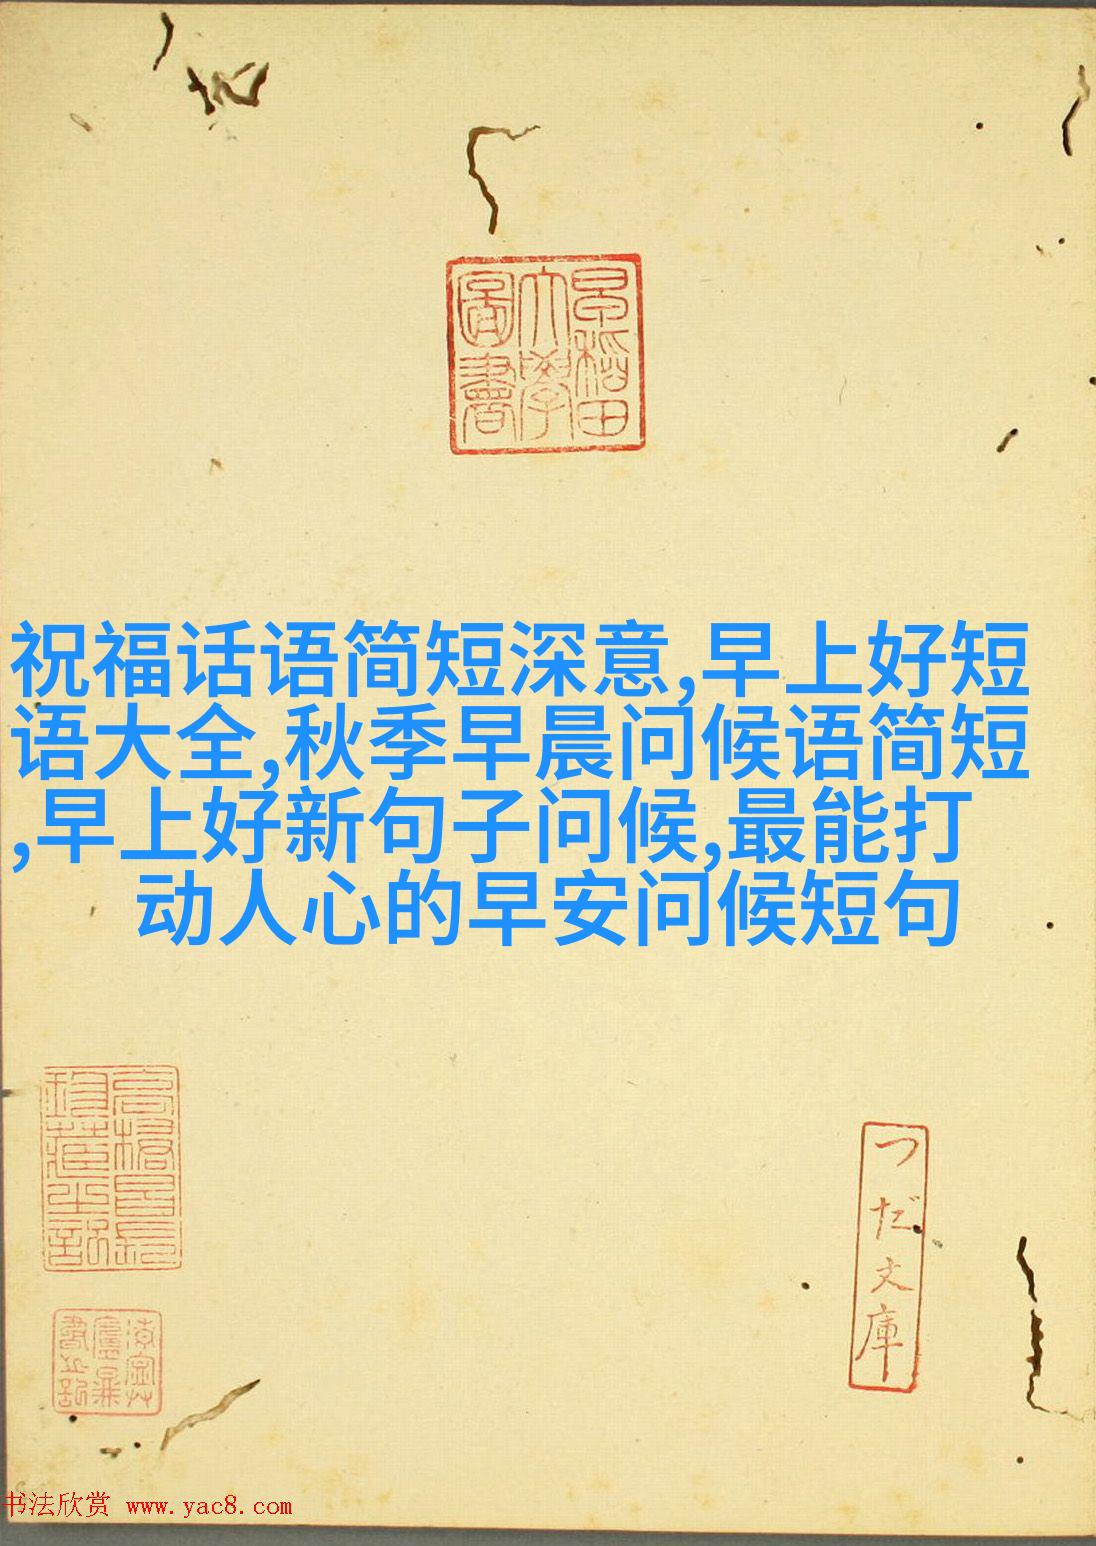 早稲田
大學
圖書
祝福话语简短深意,早上好短
语大全,秋季早晨问候语简短
,早上好新句子问候,最能打
动人心的早安问候短句
つだ文庫
书法欣赏 www.yac8.com